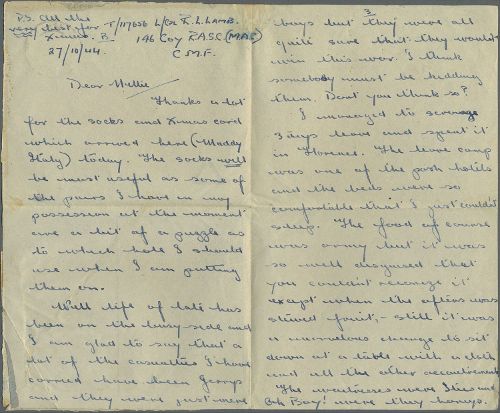 P.S. All the
very best for
Xmas. B.
T/117656 L/Cpl K. L. LAMB.
146 Coy R.A.S.C (M.A.C)
C.M.F.
27/10/44.
Dear Millie
Thanks a lot
for the socks and Xmas card
which arrived here (Muddy
Italy) today. The socks will
be most useful as some of
the pairs I have in my
possession at the moment
are a bit of a puzzle as
to which hole I should
use when I am putting
them on.
Well life of late has
been on the busy side and
I am glad to say that a
lot of the casualties I have
carried have been Jerrys
and they were just mere
3.
boys but they were all
quite sure that they would
win this war. I think
somebody must be kidding
them. Dont you think so?
I managed to scrounge
3 days leave and spent it
in Florence. The leave camp
was one of the posh hotels
and the beds were so
comfortable that I just couldn't
sleep. The food of course
was army but it was
so well disguised that
you couldn't reconize it
except when the afters was
stewed fruit, - still it was
a marvelous change to sit
down at a table with a cloth
and all the other accoutrements
The waitresses were Ities and
Oh Boy! were they